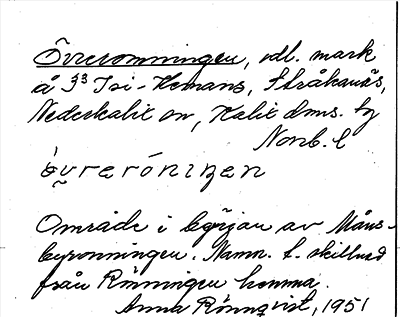 Övreromningen, odl. mark
å 3³ Isi-Hemans, Stråkanäs,
Nederkalix sn, Kalix dms. tg
Norrb. l
övreróniŋen
Område i början av Måns-
byronningen. Namn t. skillnad
från Rönningen hemma.
Anna Rönnqvist, 1951